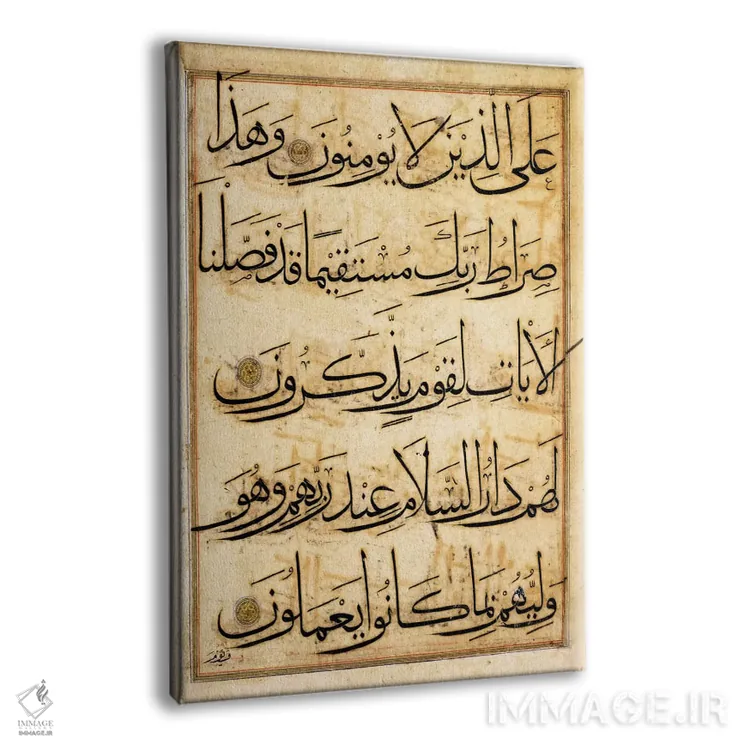 عَلَى الَّذِيْنَ لَا يُوْمِنُوْنَ وَهَذَا
صِرَاطُ رَبِّكَ مُسْتَقِيْمًا قَدْ فَصَّلْنَا
الْأَيَاتِ لِقَوْمٍ يَذَّكَّرُوْنَ
لَهُمْ دَارُ السَّلَامِ عِنْدَ رَبِّهِمْ وَهُوَ
وَلِيُّهُمْ بِمَا كَانُوا يَعْمَلُوْنَ
IMMAGE
IMMAGE.IR
IMMAGE.IR